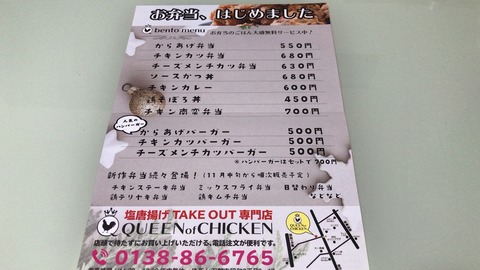 お弁当、はじめました
bento menu お弁当のごはん大盛無料サービス中！
からあげ弁当 550円
チキンカツ弁当 680円
チーズメンチカツ弁当 630円
ソースかつ丼 680円
チキンカレー 600円
鶏そぼろ丼 450円
チキン南蛮弁当 700円
人気の
ハンバーガー
からあげバーガー 500円
チキンカツバーガー 500円
チーズメンチカツバーガー 500円
＊ハンバーガーはセットで700円
新作弁当続々登場！（11月中旬から順次販売予定）
チキンステーキ弁当 ミックスフライ弁当 日替わり弁当
鶏テリヤキ弁当 鶏キム チ弁当 などなど
塩唐揚げ TAKE OUT 専門店
QUEEN of CHICKEN
店頭で待たずにお買い上げいただける、電話注文が便利です。
0138-86-6765
QUEEN of
CHICKEN